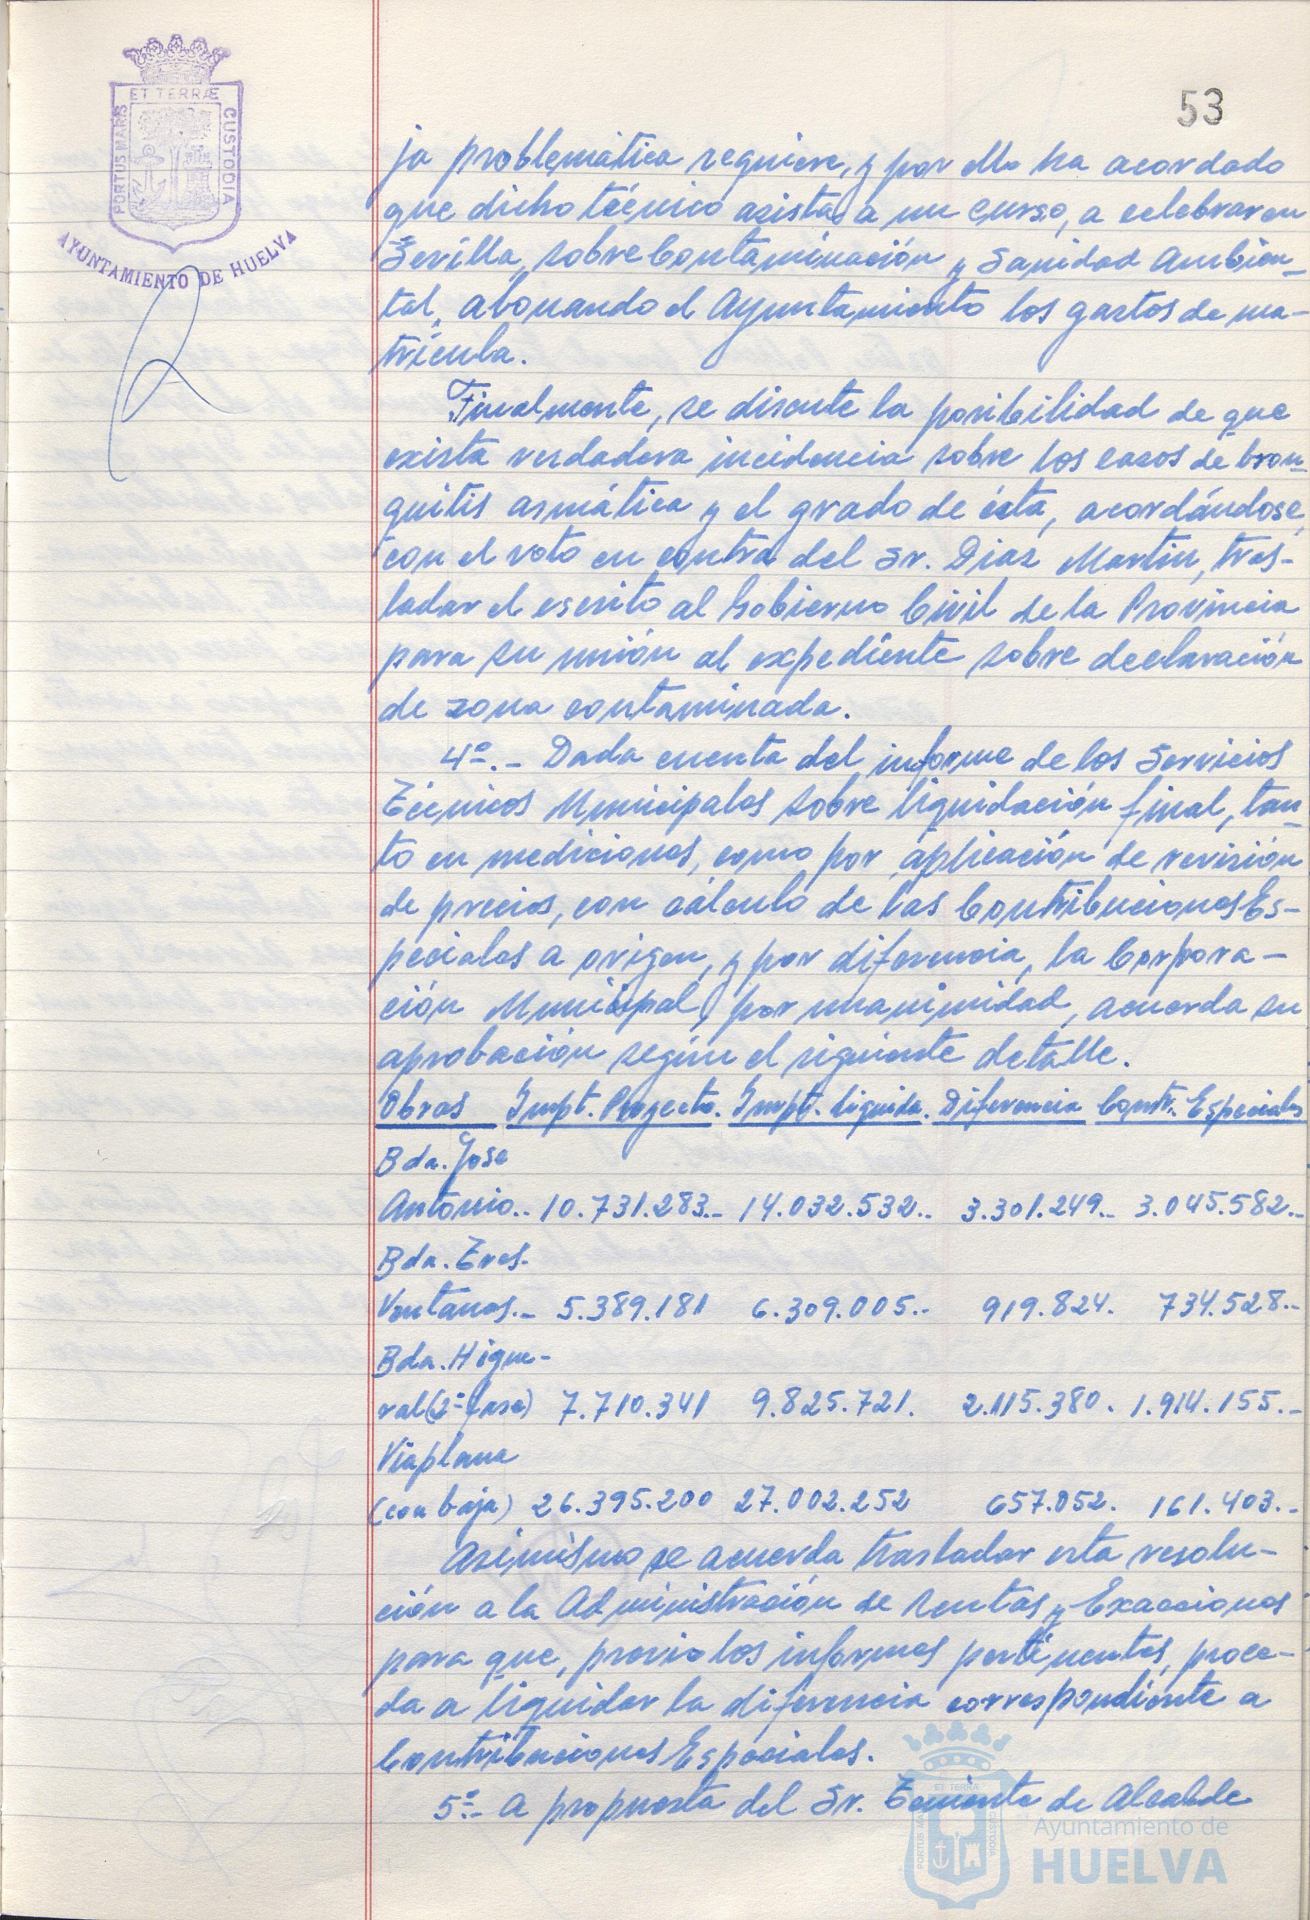 53
ET TERRÆ
PORTUS MARIS
CUSTODIA
AYUNTAMIENTO DE HUELVA
ja problemática requiere, y por ello ha acordado
que dicho técnico asista a un curso, a celebrar en
Sevilla, sobre Contaminación y Sanidad Ambien-
tal, abonando el Ayuntamiento los gastos de ma-
trícula.
Finalmente, se discute la posibilidad de que
exista verdadera incidencia sobre los casos de bron-
quitis asmática y el grado de ésta, acordándose,
con el voto en contra del Sr. Diaz Martin, tras-
ladar el escrito al Gobierno Civil de la Provincia
para su unión al expediente sobre declaración
de zona contaminada.
4º.- Dada cuenta del informe de los Servicios
Técnicos Municipales sobre liquidación final, tan-
to en mediciones, como por aplicación de revisión
de precios, con cálculo de las Contribuciones Es-
peciales a origen, y por diferencia, la Corpora-
ción Municipal, por unanimidad, acuerda su
aprobación según el siguiente detalle.
Obras Impt. Proyecto. Impt. liquida. Diferencia Contr. Especiales
Bda. Jose
Antonio.. 10.731.283.- 14.032.532.- 3.301.249.- 3.045.582.-
Bda. Tres
Ventanas.- 5.389.181 6.309.005.- 919.824. 734.528.-
Bda. Higue-
ral (2ª fase) 7.710.341 9.825.721. 2.115.380. 1.914.155.-
Viaplana
(con baja) 26.395.200 27.002.252 657.052. 161.403.-
Asimismo se acuerda trasladar esta resolu-
ción a la Administración de Rentas y Exacciones
para que, previo los informes pertinentes, proce-
da a liquidar la diferencia correspondiente a
Contribuciones Especiales.
5º.- A propuesta del Sr. Teniente de Alcalde
ET TERRA
PORTUS MARIS
CUSTODIA
Ayuntamiento de
HUELVA